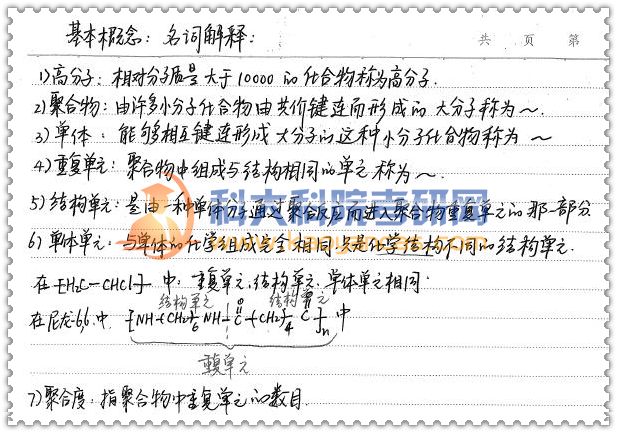 基本概念：名词解释：
共 页 第
1)高分子：相对分子质量大于10000的化合物称为高分子.
2)聚合物：由许多小分子化合物由共价键连而形成的大分子称为～.
3)单体：能够相互键连形成大分子的这种小分子化合物称为～
4)重复单元：聚合物中组成与结构相同的单元称为～.
科大科院考研网
5)结构单元：是由一种单体分子通过聚合反应而进入聚合物重复单元的那一部分
6)单体单元：与单体的化学组成完全相同只是化学结构不同的结构单元.
在-[H₂C-CHCl]- 中：重复单元、结构单元、单体单元相同.
结构单元 结构单元
在尼龙6,6.中 -[NH-(CH₂)₆NH-C(O)-(CH₂)₄C(O)]ₙ中
重复单元
7)聚合度：指聚合物中重复单元的数目.